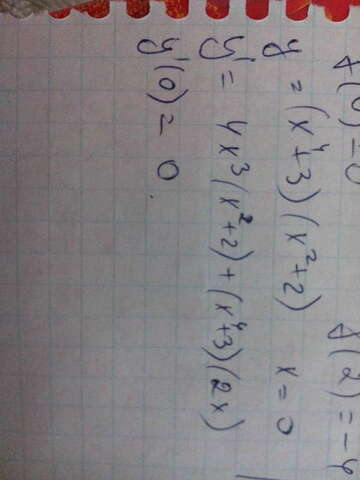 f(0) = 0 f(2) = -4
y = (x⁴+3)(x²+2) x = 0
y' = 4x³(x²+2)+(x⁴+3)(2x)
y'(0) = 0